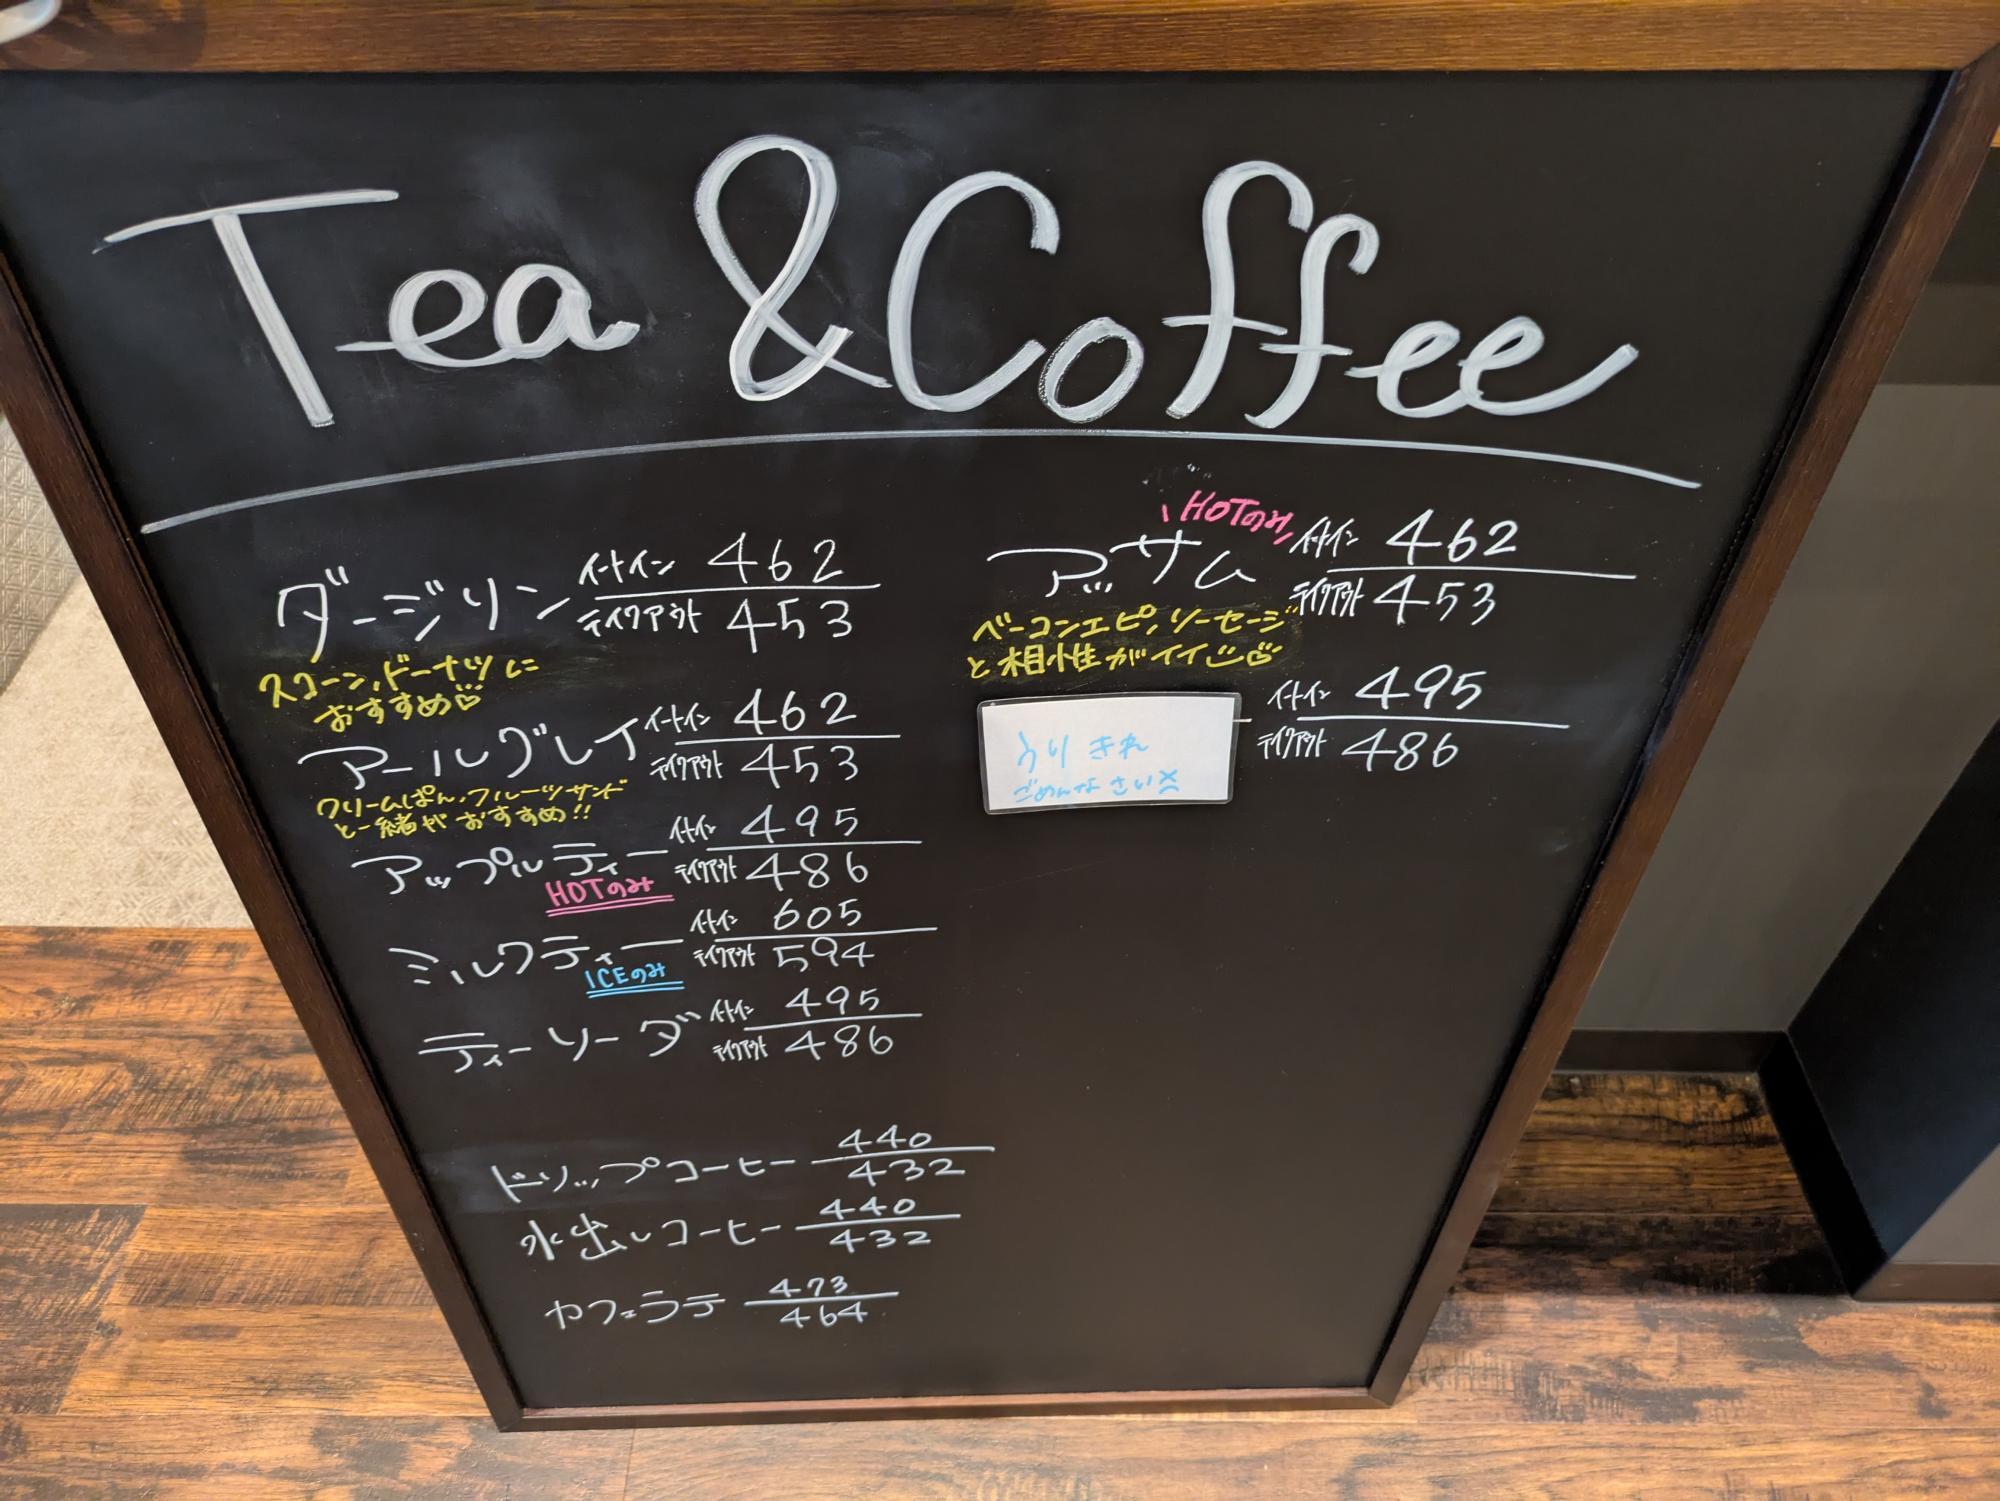 Tea & Coffee
ダージリン イートイン 462
テイクアウト 453
スコーン、ドーナツに
おすすめ♡
アールグレイ イートイン 462
テイクアウト 453
クリームぱん、フルーツサンド
と一緒がおすすめ!!
アップルティー イートイン 495
テイクアウト 486
HOTのみ
ミルクティー イートイン 605
テイクアウト 594
ICEのみ
ティーソーダ イートイン 495
テイクアウト 486
ドリップコーヒー 440
432
水出しコーヒー 440
432
カフェラテ 473
464
HOTのみ
アッサム イートイン 462
テイクアウト 453
ベーコンエピ、ソーセージ
と相性がイイ
イートイン 495
テイクアウト 486
うりきれ
ごめんなさい